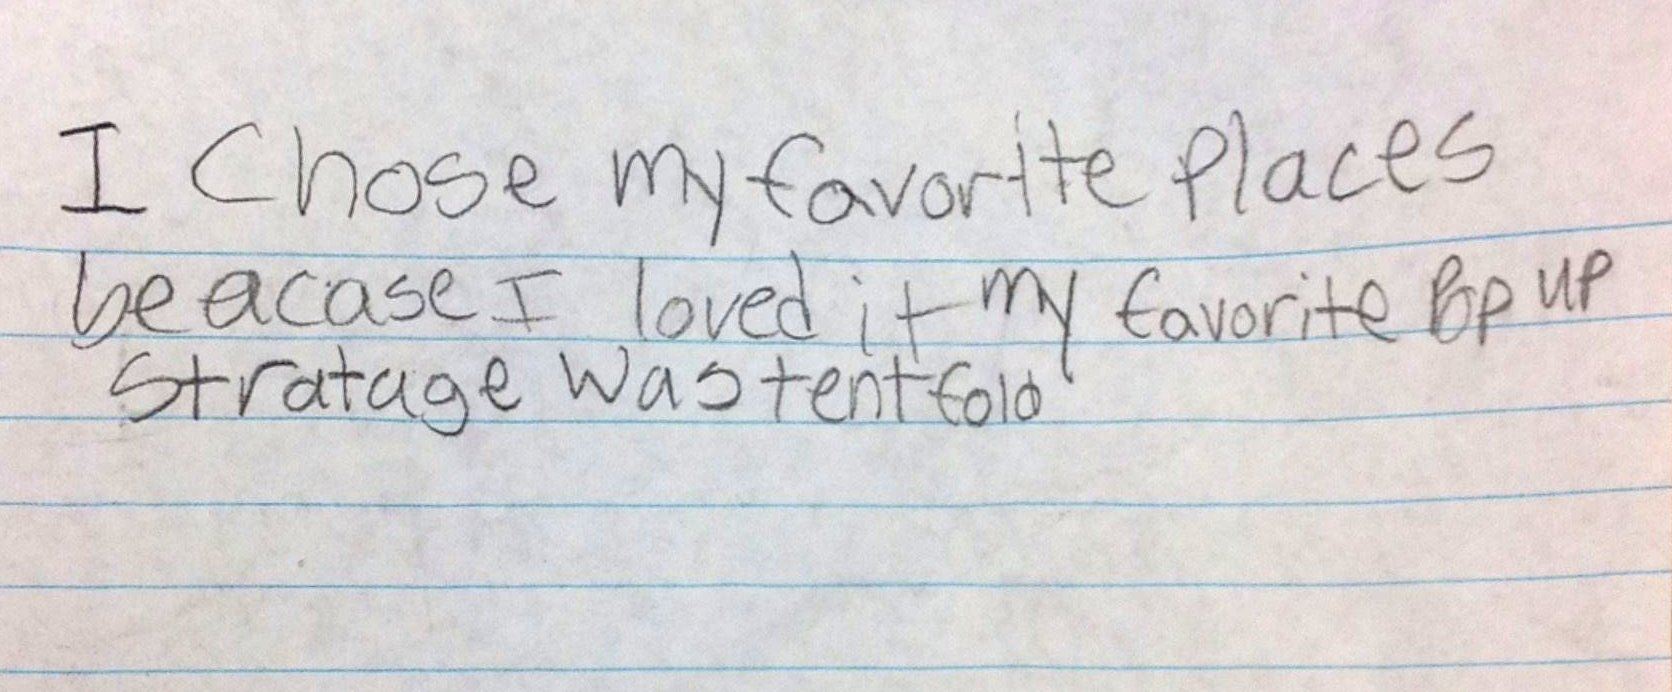 I Chose my favorite places
beacase I loved it my favorite Pop up
Stratage was tent fold